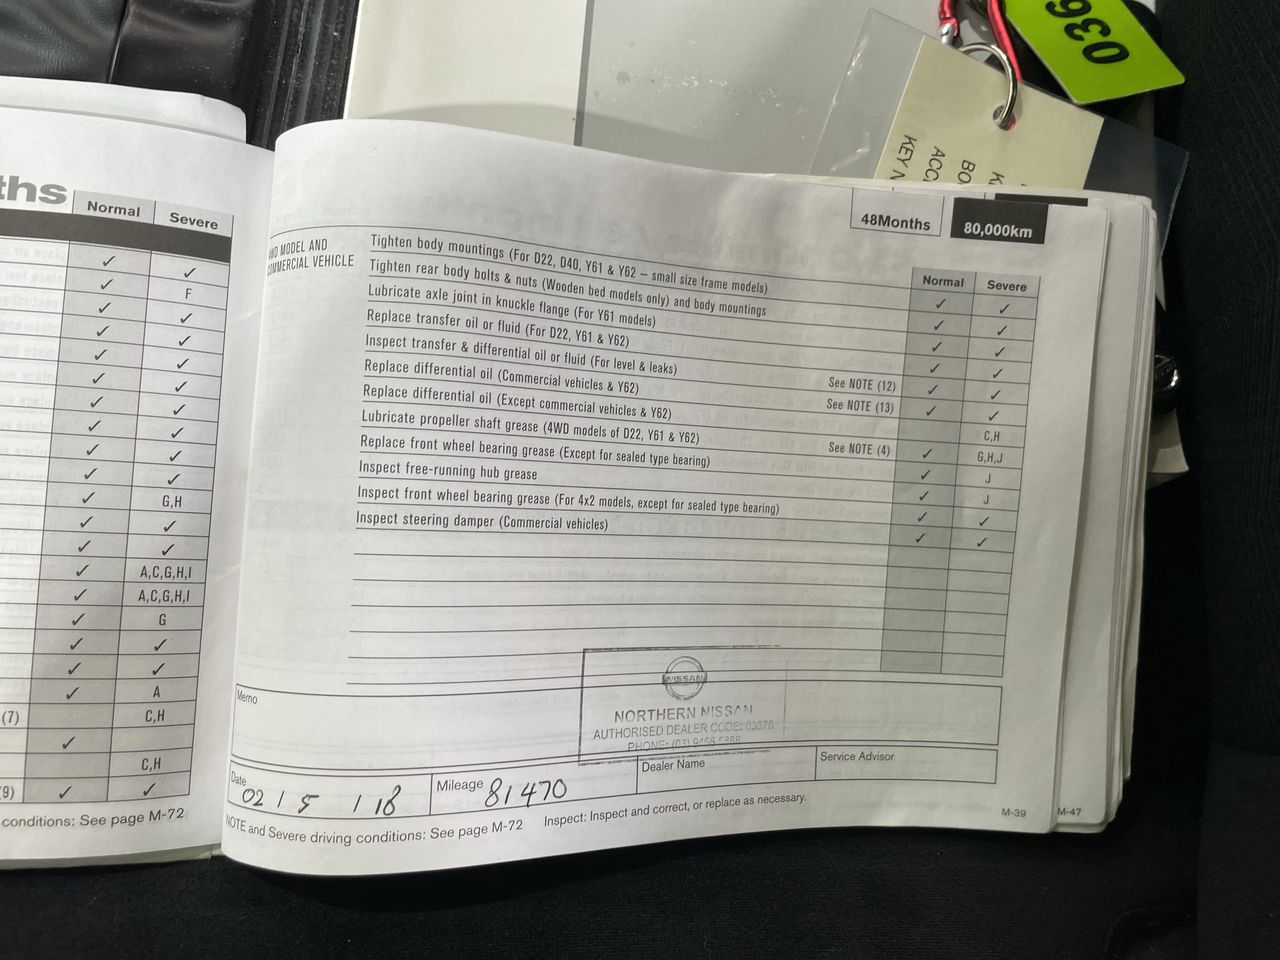 ths
Normal
Severe
✓ ✓
✓ F
✓ ✓
✓ ✓
✓ ✓
✓ ✓
✓ ✓
✓ ✓
✓ ✓
✓ ✓
✓ G,H
✓ ✓
✓ ✓
✓ A,C,G,H,I
✓ A,C,G,H,I
✓ G
✓ ✓
✓ ✓
✓ A
(7) C,H
✓
C,H
(9) ✓ ✓
conditions: See page M-72
036
KEY N
ACC
BO
K
48Months
80,000km
MODEL AND
COMMERCIAL VEHICLE
Normal
Severe
Tighten body mountings (For D22, D40, Y61 & Y62 – small size frame models) ✓ ✓
Tighten rear body bolts & nuts (Wooden bed models only) and body mountings ✓ ✓
Lubricate axle joint in knuckle flange (For Y61 models) ✓ ✓
Replace transfer oil or fluid (For D22, Y61 & Y62) ✓ ✓
Inspect transfer & differential oil or fluid (For level & leaks) See NOTE (12) ✓ ✓
Replace differential oil (Commercial vehicles & Y62) See NOTE (13) ✓ ✓
Replace differential oil (Except commercial vehicles & Y62) C,H
Lubricate propeller shaft grease (4WD models of D22, Y61 & Y62) See NOTE (4) ✓ G,H,J
Replace front wheel bearing grease (Except for sealed type bearing) ✓ J
Inspect free-running hub grease ✓ J
Inspect front wheel bearing grease (For 4x2 models, except for sealed type bearing) ✓ ✓
Inspect steering damper (Commercial vehicles) ✓ ✓
Memo
NISSAN
NORTHERN NISSAN
AUTHORISED DEALER CODE: 03376
PHONE: (03)
Date
02 / 5 / 18
Mileage 81470
Dealer Name
Service Advisor
NOTE and Severe driving conditions: See page M-72
Inspect: Inspect and correct, or replace as necessary.
M-39
M-47